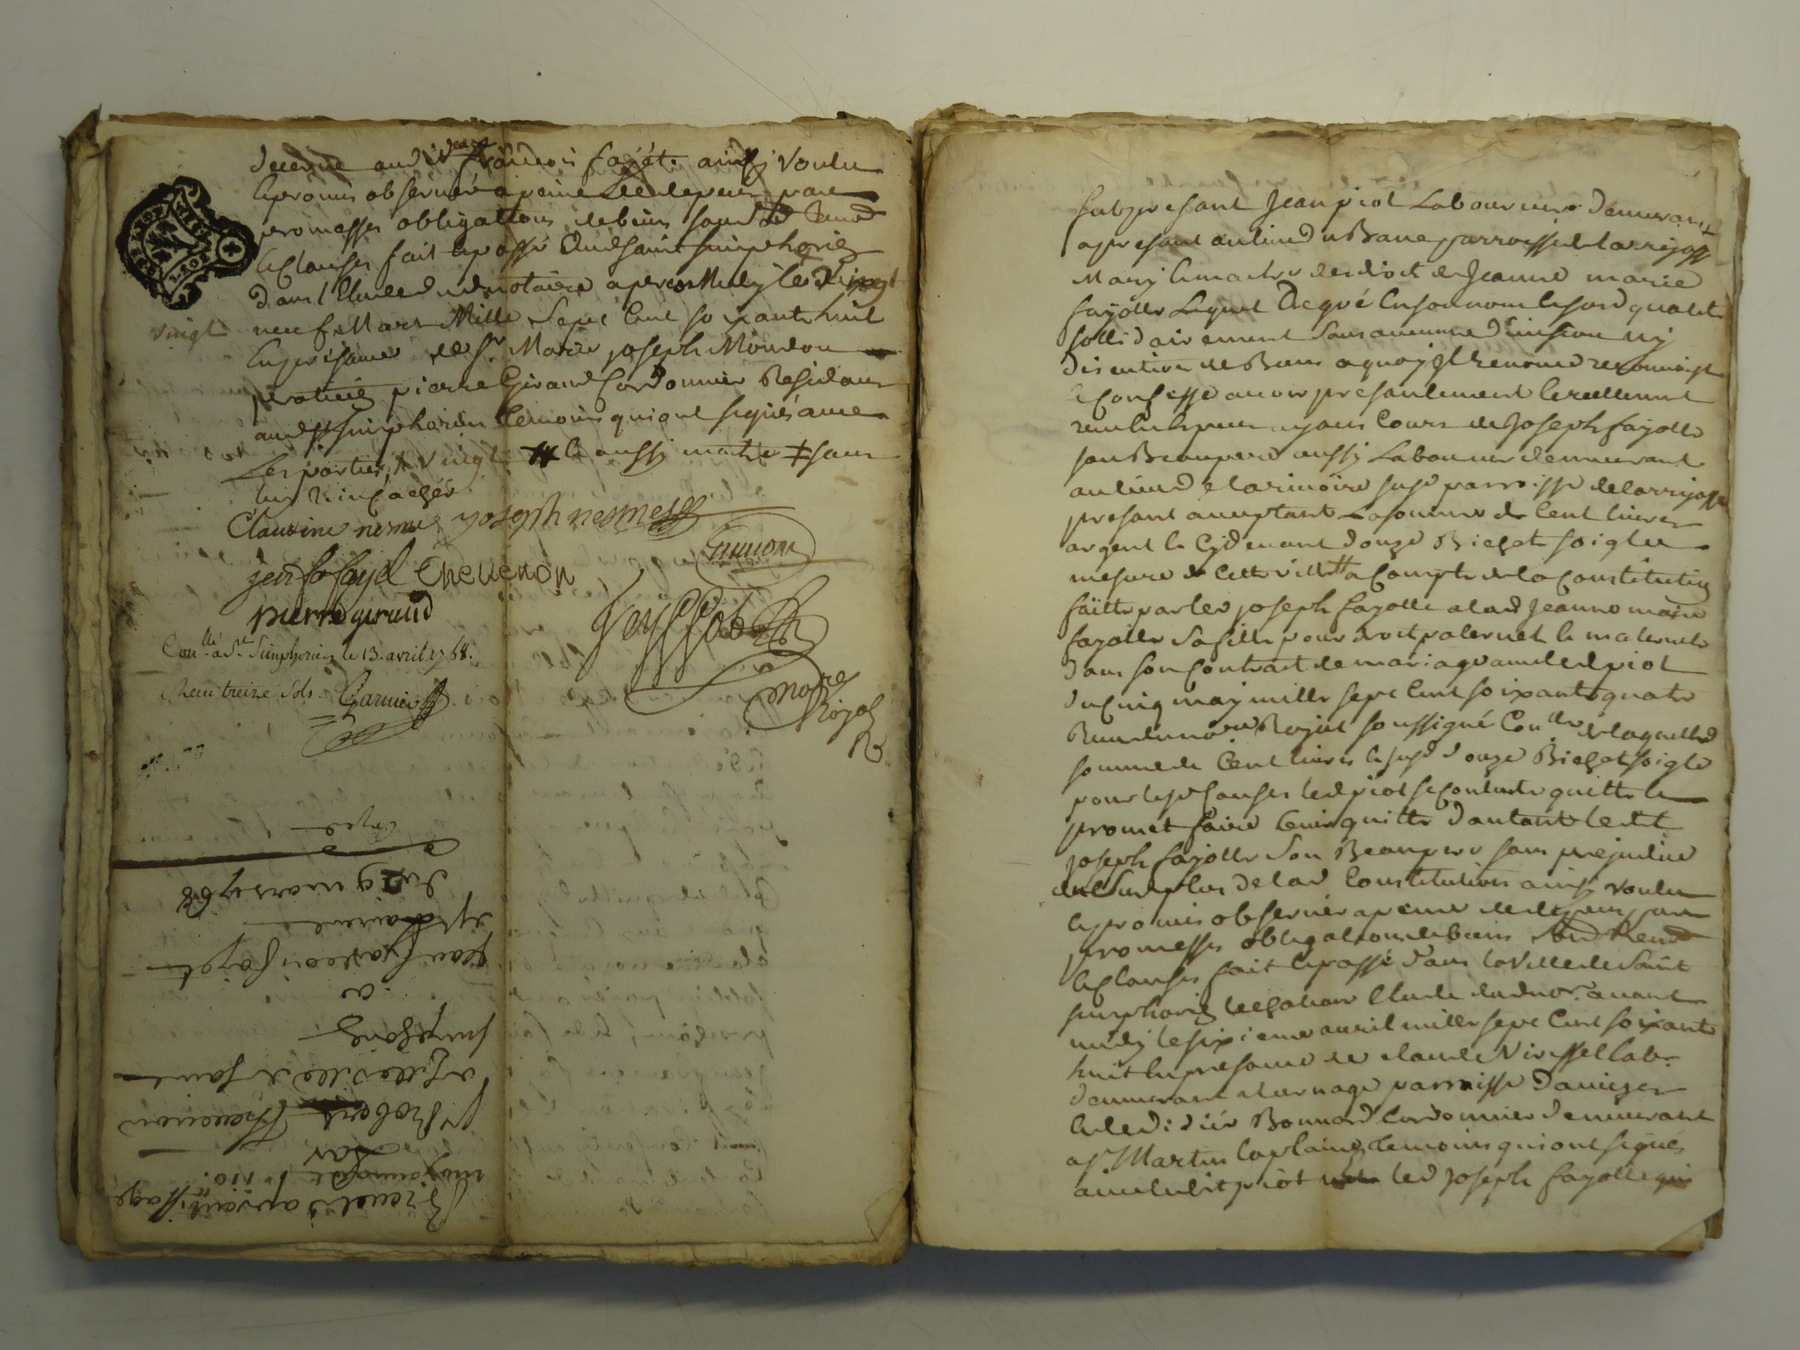 decerné audit jean françois fayet. ainssy voulu
et promis observer a peine de tous depens par
promesses obligations de biens soumon Renon
et clauses fait et passé audt saint simphorien
dans l'Etude dudt notaire apres Midy le vingt
vingt
neuf Mars Mille Sept Cent soixante huit
En présance de Sr Marie joseph Moulon
praticien pierre Giraud Cordonnier Residant
audt st simphorien temoins qui ont signés avec
Les parties vingt et aussy maitre sans
Claudine nesme joseph nesmes
jean fs fayet Thevenon
pierre giraud
Conllé a St Simphorien le 13. avril 1768.
Reçu treize sols. Garnier
Nore
Royal
Brevet d'aprantissage
moyennant 110.
Par
Sr Robert Thevenon
de ville de saint
simphorien
a
jean françois fayet
du 29 mars 1768
fut present Jean piot Laboureur demeurant
a present au lieu du Bane parroisse de larrajasse
Mary et maitre des droit de Jeanne marie
fayolle Lequel De gré En son nom et susd qualité
sollidairement sans aucune division ny
discution de Biens a quoy Il renonce reconnoist
et Confesse avoir presantement et reellement
receu en peu de jours Cours de Joseph fayolle
son Beaupere aussy Laboureur demeurant
au lieu de larimoire susd parroisse de larrajasse
presant acceptant La somme de Cent livres
argent et Cydevant douze Bichet soigle
mesure de cette ville a Compte de la Constitution
faitte par led joseph fayolle a lad Jeanne marie
fayolle sa fille pour droit paternel et maternel
dans son Contrat de mariage avec led piot
du Cinq may mille sept Cent soixante quatre
Receu du nore Royal soussigné Conllé de laquelle
somme de Cent livres et susd douze Bichet soigle
pour les causes led piot se Contente quitte et
promet faire tenir quitte d'autant le dit
joseph fayolle son Beaupere sans prejudice
du surplus de lad Constitution ainsy voulu
et promis observer a peine de tous depens par
promesses obligations de biens soumon Renon
et clauses fait et passé dans la ville de Saint
simphorien le chateau Etude dudt nore avant
midy le sixieme avril mille sept Cent soixante
huit En presance de claude Viressel labr
demeurant a lornage parroisse d'aveizes
et de didier Bonnard Cordonnier demeurant
a St Martin la plaine temoins qui ont signés
avec ledit piot led Joseph fayolle qui